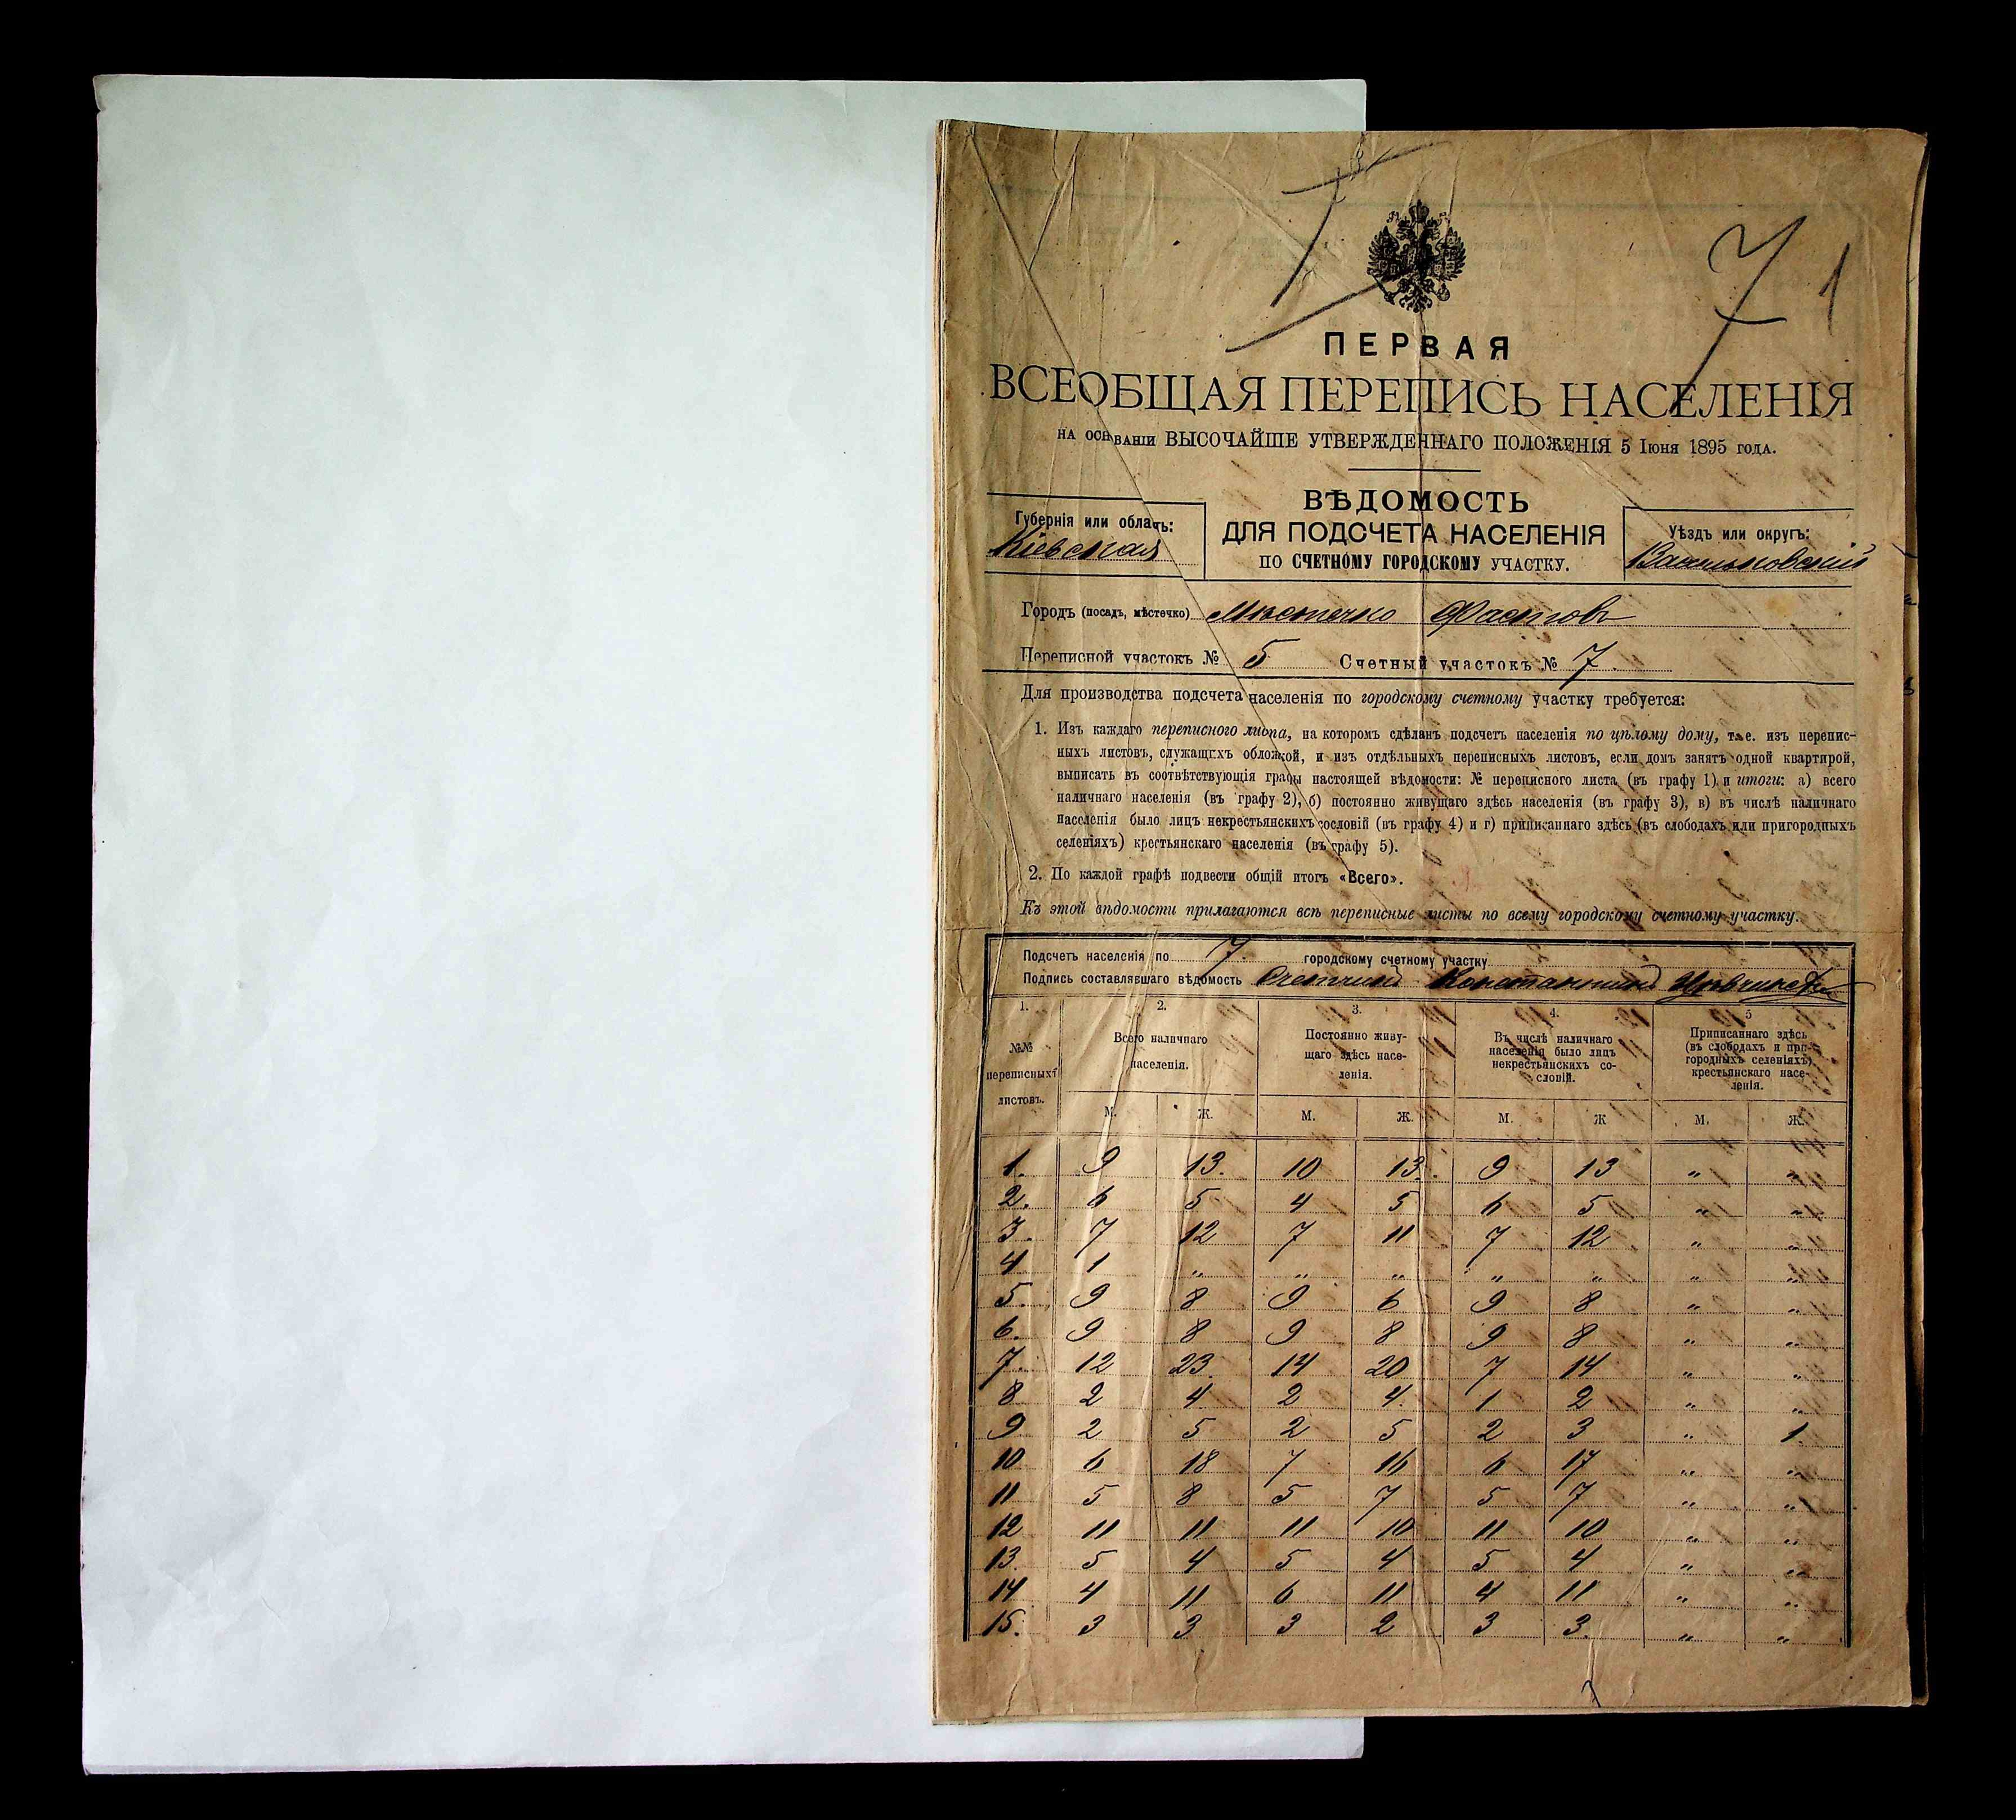 7 1
ПЕРВАЯ
ВСЕОБЩАЯ ПЕРЕПИСЬ НАСЕЛЕНІЯ
НА ОСНОВАНІИ ВЫСОЧАЙШЕ УТВЕРЖДЕННАГО ПОЛОЖЕНІЯ 5 Іюня 1895 года.
ВѢДОМОСТЬ
ДЛЯ ПОДСЧЕТА НАСЕЛЕНІЯ
ПО СЧЕТНОМУ ГОРОДСКОМУ УЧАСТКУ.
Губернія или область:
Кіевская
Уѣздъ или округъ:
Васильковскій
Городъ (посадъ, мѣстечко) Мѣстечко Фастовъ
Переписной участокъ № 5 Счетный участокъ № 7
Для производства подсчета населенія по городскому счетному участку требуется:
1. Изъ каждаго переписного листа, на которомъ сдѣланъ подсчетъ населенія по цѣлому дому, т. е. изъ перепис-
ныхъ листовъ, служащихъ обложкой, и изъ отдѣльныхъ переписныхъ листовъ, если домъ занятъ одной квартирой,
выписать въ соотвѣтствующія графы настоящей вѣдомости: № переписного листа (въ графу 1) и итоги: а) всего
наличнаго населенія (въ графу 2), б) постоянно живущаго здѣсь населенія (въ графу 3), в) въ числѣ наличнаго
населенія было лицъ некрестьянскихъ сословій (въ графу 4) и г) приписаннаго здѣсь (въ слободахъ или пригородныхъ
селеніяхъ) крестьянскаго населенія (въ графу 5).
2. По каждой графѣ подвести общій итогъ «Всего».
Къ этой вѣдомости прилагаются всѣ переписные листы по всему городскому счетному участку.
Подсчетъ населенія по 7. городскому счетному участку
Подпись составлявшаго вѣдомость Счетчикъ Константинъ
1. 2. 3. 4. 5
№№ переписныхъ листовъ.
Всего наличнаго населенія.
Постоянно живу-
щаго здѣсь насе-
ленія.
Въ числѣ наличнаго
населенія было лицъ
некрестьянскихъ со-
словій.
Приписаннаго здѣсь
(въ слободахъ и при-
городныхъ селеніяхъ)
крестьянскаго насе-
ленія.
М. Ж. М. Ж. М. Ж М. Ж.
1. 9 13. 10 13. 9 13 „ „
2. 6 5 4 5 6 5 „ „
3. 7 12 7 11 7 12 „ „
4 1 „ „ „ „ „ „ „
5. 9 8 9 6 9 8 „ „
6. 9 8 9 8 9 8 „ „
7. 12 23. 14 20 7 14 „ „
8 2 4 2 4. 1 2 „ „
9 2 5 2 5 2 3 „ 1.
10 6 18 7 16 6 17 „ „
11 5 8 5 7 5 7 „ „
12 11 11 11 10 11 10 „ „
13. 5 4 5 4 5 4 „ „
14 4 11 6 11 4 11 „ „
15. 3 3 3 2 3 3. „ „